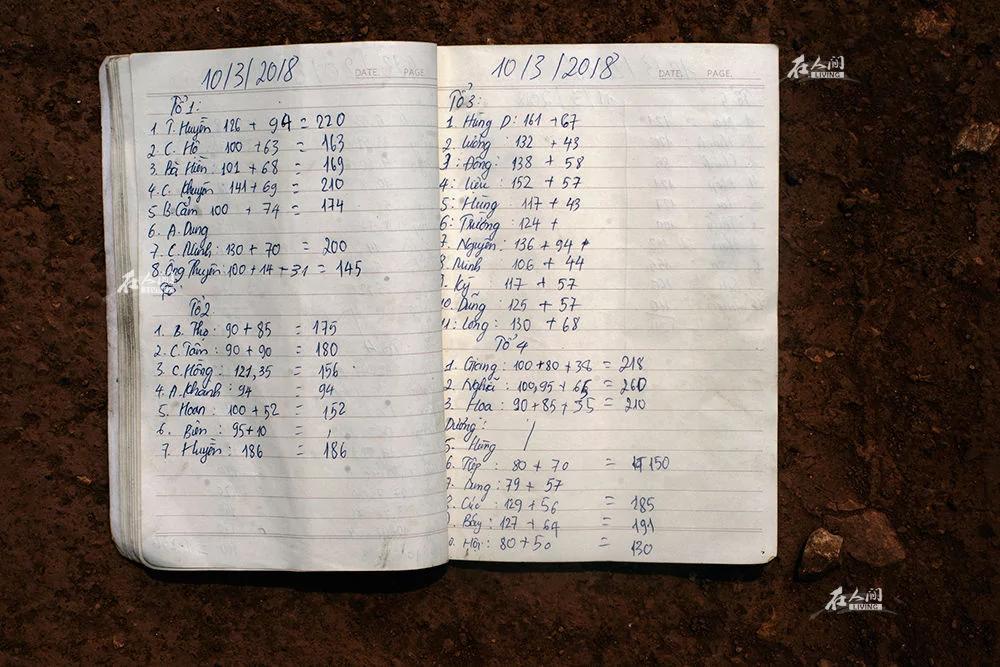 10/3/2018
DATE. PAGE.
Tổ 1:
1. T. Huyền 126 + 94 = 220
2. C. Hồ 100 + 63 = 163
3. Bà Hiền: 101 + 68 = 169
4. C. Khuyên: 141 + 69 = 210
5 B. Cẩm 100 + 74 = 174
6. A. Dung
7. C. Minh: 130 + 70 = 200
8. Ông Thuyên: 100 + 14 + 31 = 145
Tổ
Tổ 2
1. B. Thọ: 90 + 85 = 175
2. C. Tâm: 90 + 90 = 180
3. C. Hồng: 121, 35 = 156
4. A. Khánh: 94 = 94
5. Hoan: 100 + 52 = 152
6. Biên: 95 + 10 =
7. Huyền: 186 = 186
10/3/2018
DATE. PAGE.
Tổ 3:
1. Hùng D: 161 + 67
2. Lương: 132 + 43
3: Đông: 138 + 58
4: Liễu: 152 + 57
5: Hùng: 117 + 43
6: Trường: 124 +
7. Nguyên: 136 + 94 +
8. Minh 106 + 44
9. Kỳ: 117 + 57
10. Dũng: 125 + 57
11: Long: 130 + 68
Tổ 4
1. Giang: 100 + 80 + 38 = 218
2. Nghĩa: 100, 95 + 65 = 260
3. Hoa: 90 + 85 + 35 = 210
Dương:
5. Hùng
6. Tiệp: 80 + 70 = 150
7. Dung: 79 + 57
8. Cúc: 129 + 56 = 185
9. Bảy: 127 + 64 = 191
0. Hội: 80 + 50 = 130
在人间
LIVING
在人间
LIVING
在人间
LIVING